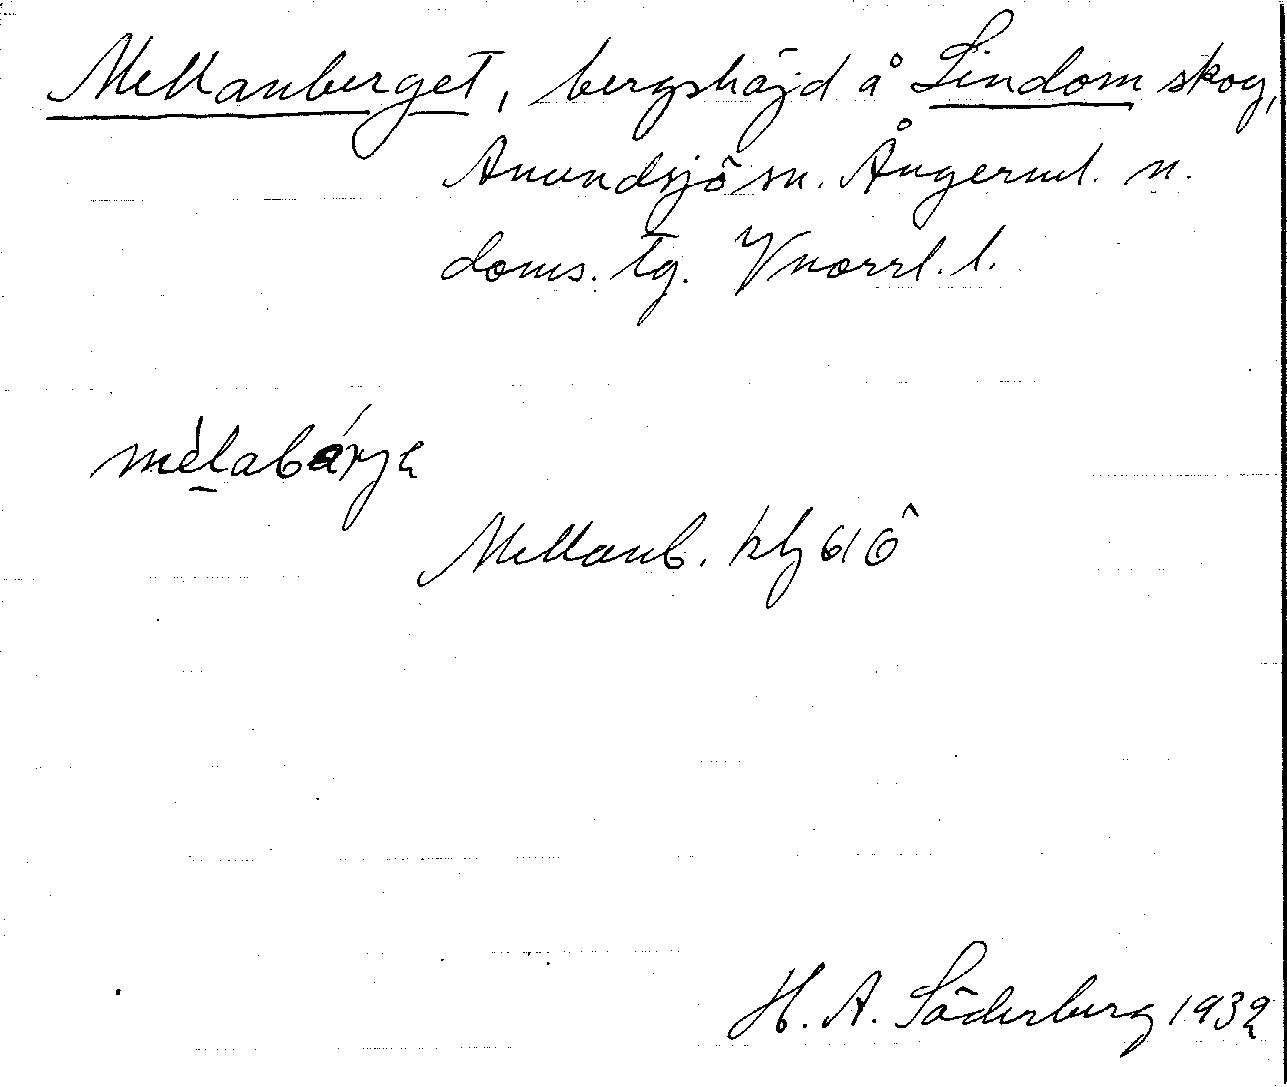 Mellanberget, bergshöjd å Lindom skog,
Anundsjö sn. Ångerml. n.
doms. tg. Vnorrl. l.
mèlabárja
Mellanb. kbl 61 Ö
H. A. Söderberg 1932